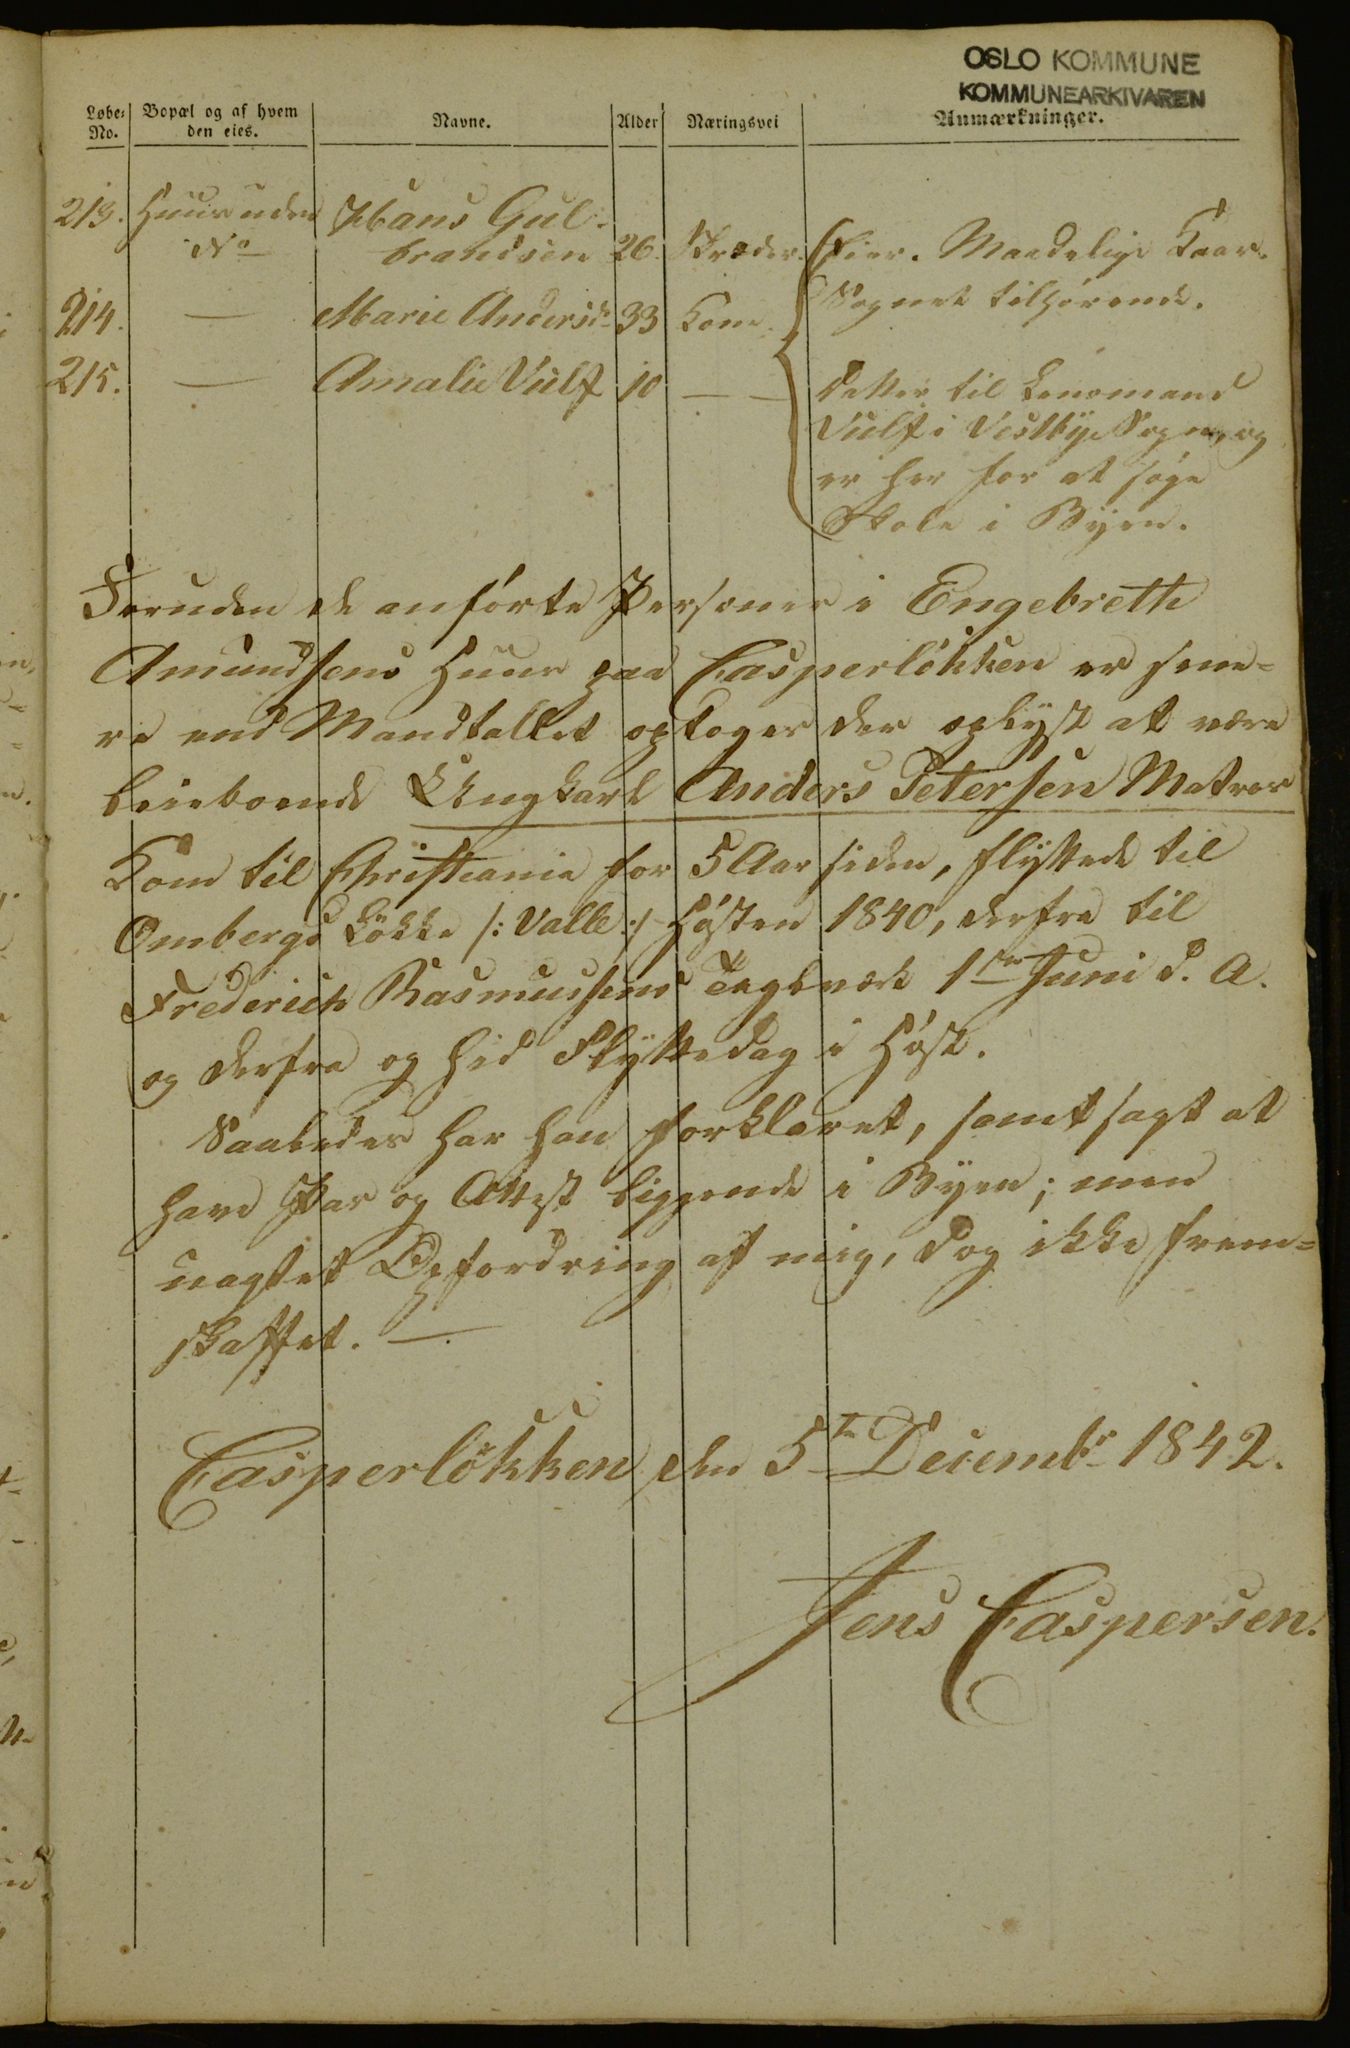 OSLO KOMMUNE
KOMMUNEARKIVAREN
Løbe-No. Bopæl og af hvem den eies. Navne. Alder Næringsvei Anmærkninger.
213. Huus uden No Hans Gulbrandsen 26. Skræder. Eier. Maadelige Kaar.
214. — Marie Andersd. 33 Kone. Sognet tilhørende.
215. — Amalie Vulf 10 — — Datter til Lensmand
Vulf i Vestbye Sogn, og
er her for at søge
Skole i Byen.
Foruden de anførte Personer i Engebreth
Amundsens Huus paa Casperløkken er sene=
re end Mandtallet optoges der oplyst at være
leieboende Ungkarl Anders Petersen Matros
Kom til Christiania for 5 Aar siden, flyttede til
Ombergs Løkke /: Valle :/ Høsten 1840, derfra til
Frederich Rasmussens Teglværk 1ste Juni d. A.
og derfra og hid Flyttedag i Høst.
Saaledes har han forklaret, samt sagt at
have Pas og Attest liggende i Byen; men
uagtet Opfordring af mig, dog ikke frem=
skaffet. —
Casperløkken den 5te Decembr 1842.
Jens Caspersen.